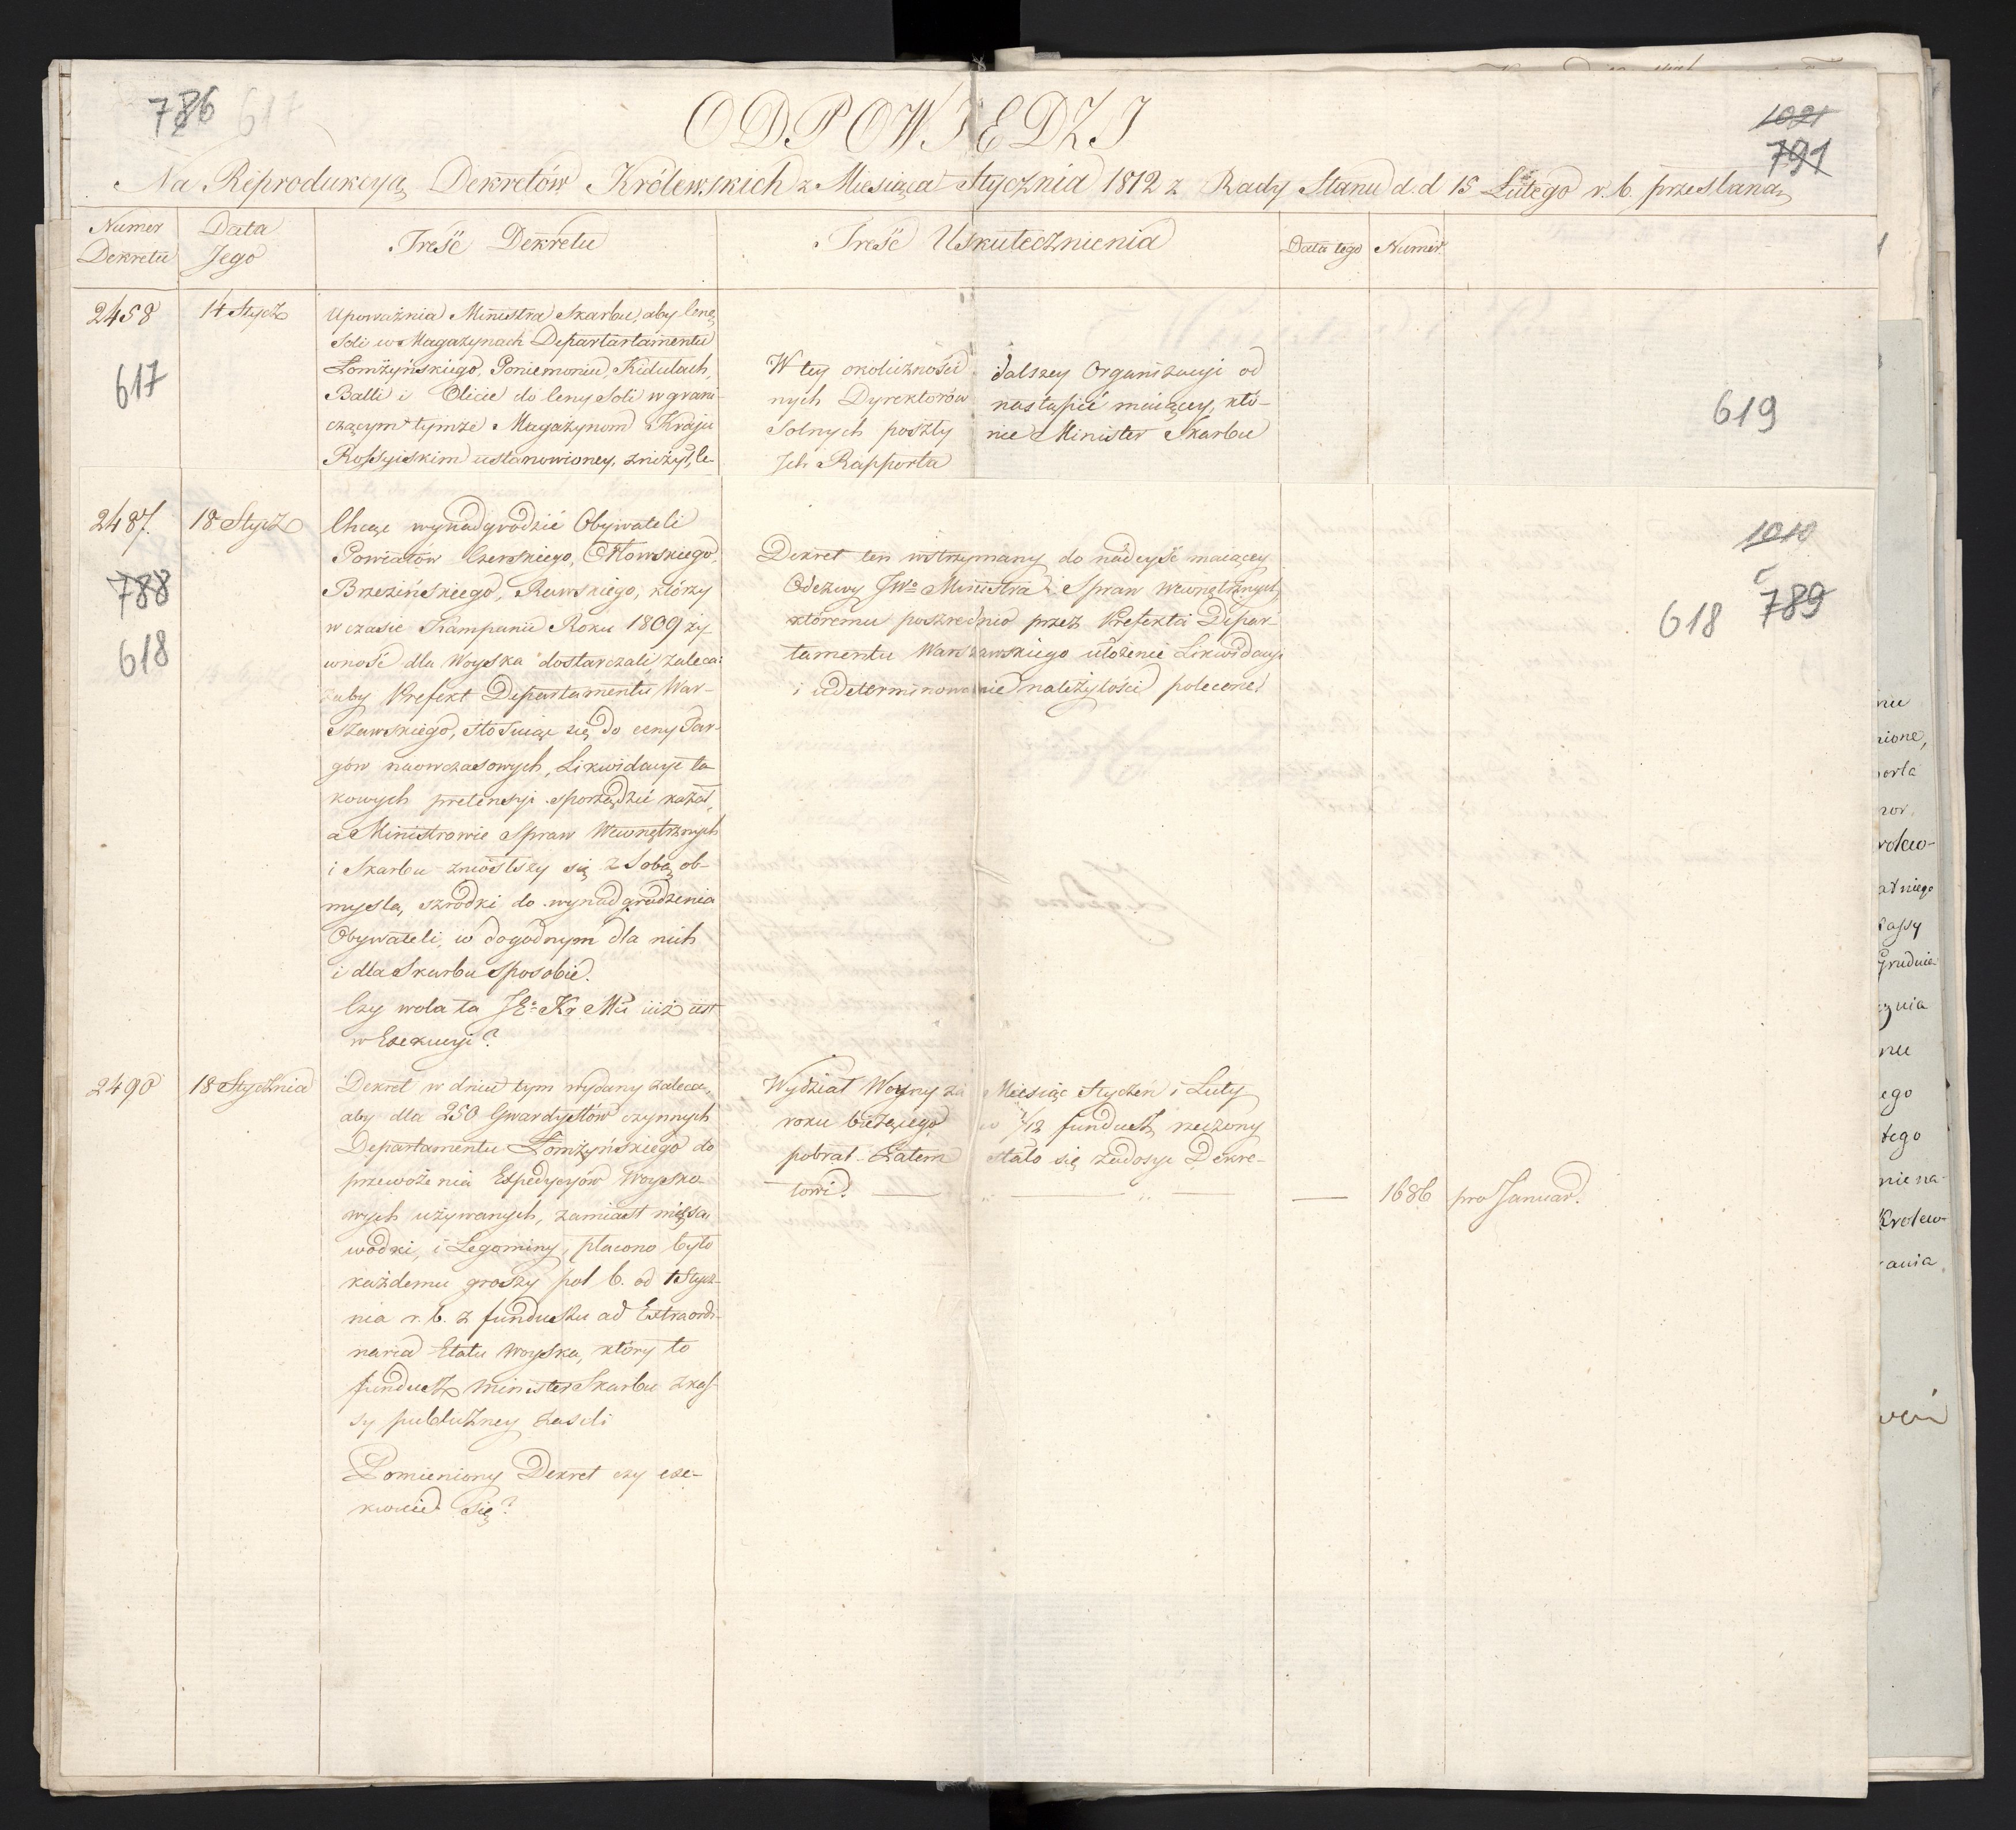 786 617
ODPOWIEDZI
1021
791
Na Reprodukcyą Dekretów Królewskich z Miesiąca Stycznia 1812 z Rady Stanu d.d 15 Lutego r.b. przesłaną
Numer Dekretu
Data Jego
Treść Dekretu
Treść Uskutecznienia
Data tego
Numer
2458
14 Stycz
617
Upoważnia Ministra Skarbu, aby cenę
Soli w Magazynach Departartamentu
Łomżyńskiego, Poniemoniu, Kidulach,
Balli i Olicie do ceny Soli w grani-
czącym tymże Magazynom Kraju
Rossyiskim ustanowioney, zniżył, le-
W tey okoliczności dalszey Organizacyi od
nych Dyrektorów nastąpić maiącey, któ-
Solnych poszły nie Minister Skarbu
Ich Rapporta
619
2487.
18 Stycz
788
618
Chcąc wynadgrodzić Obywateli
Powiatów Czerskiego, Orłowskiego,
Brzezińskiego, Rawskiego, którzy
w czasie Kampanii Roku 1809 ży-
wność dla Woyska dostarczali, zaleca:
aby Prefekt Departamentu War-
szawskiego, stosuiąc się do ceny Tar-
gów naowczasowych, Likwidacye ta
kowych pretensyi sporządzić kazał,
a Ministrowie Spraw Wewnętrznych
i Skarbu zniosłszy się z Sobą ob-
myslą, szrodki do wynadgrodzenia
Obywateli, w dogodnym dla nich
i dla Skarbu sposobie.
Czy wola ta JE: Kr Mci iiż iest
w Exekucyi?
Dekret ten wstrzymany do nadeyść maiącey
Odezwy JWo Ministra Spraw Wewnętrznych,
któremu poszrednio przez Prefekta Depar-
tamentu Warszawskiego ułożenie Likwidacyi
i udeterminowanie należytości polecone.
1010
618 789
2490
18 Stycznia
Dekret w dniu tym wydany zaleca,
aby dla 250 Gwardystów czynnych
Departamentu Łomżyńskiego do
przewożenia Expedycyów Woysko-
wych używanych, zamiast mięsa,
wodki, i Legominy, płacono było
każdemu groszy pol 6. od 1 Stycz-
nia r. b. z funduszu ad Extraordi-
naria Etatu Woyska, który to
fundusz Minister Skarbu z kas-
sy publiczney zasili
Pomieniony Dekret czy exe-
kwuie się?
Wydział Woyny za Miesiąc Styczeń i Luty
roku bieżącego 1/12 fundusz rzeczony
pobrał. Zatem stało się zadosyć Dekre-
towi.
1686
pro Januar.